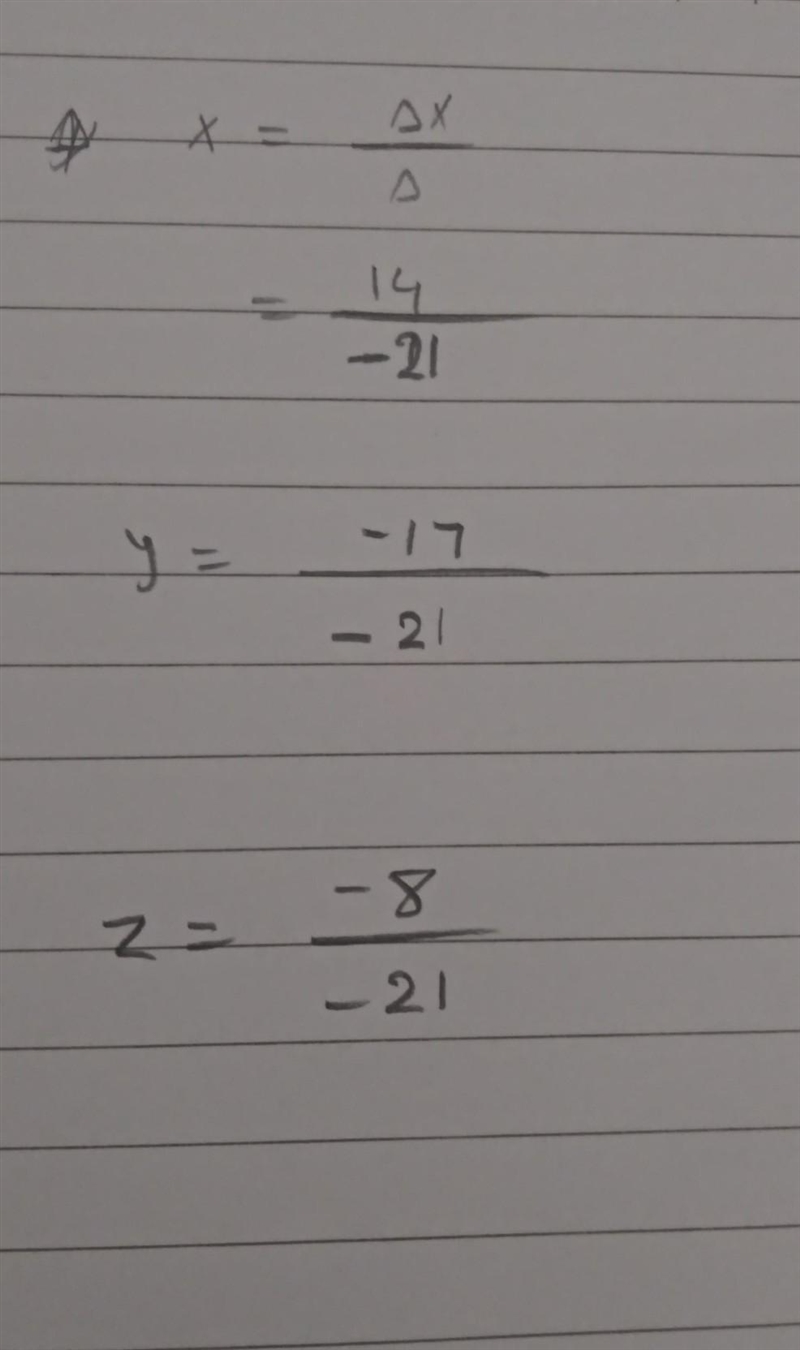 x = Δx
Δ
= 14
-21
y = -17
-21
z = -8
-21